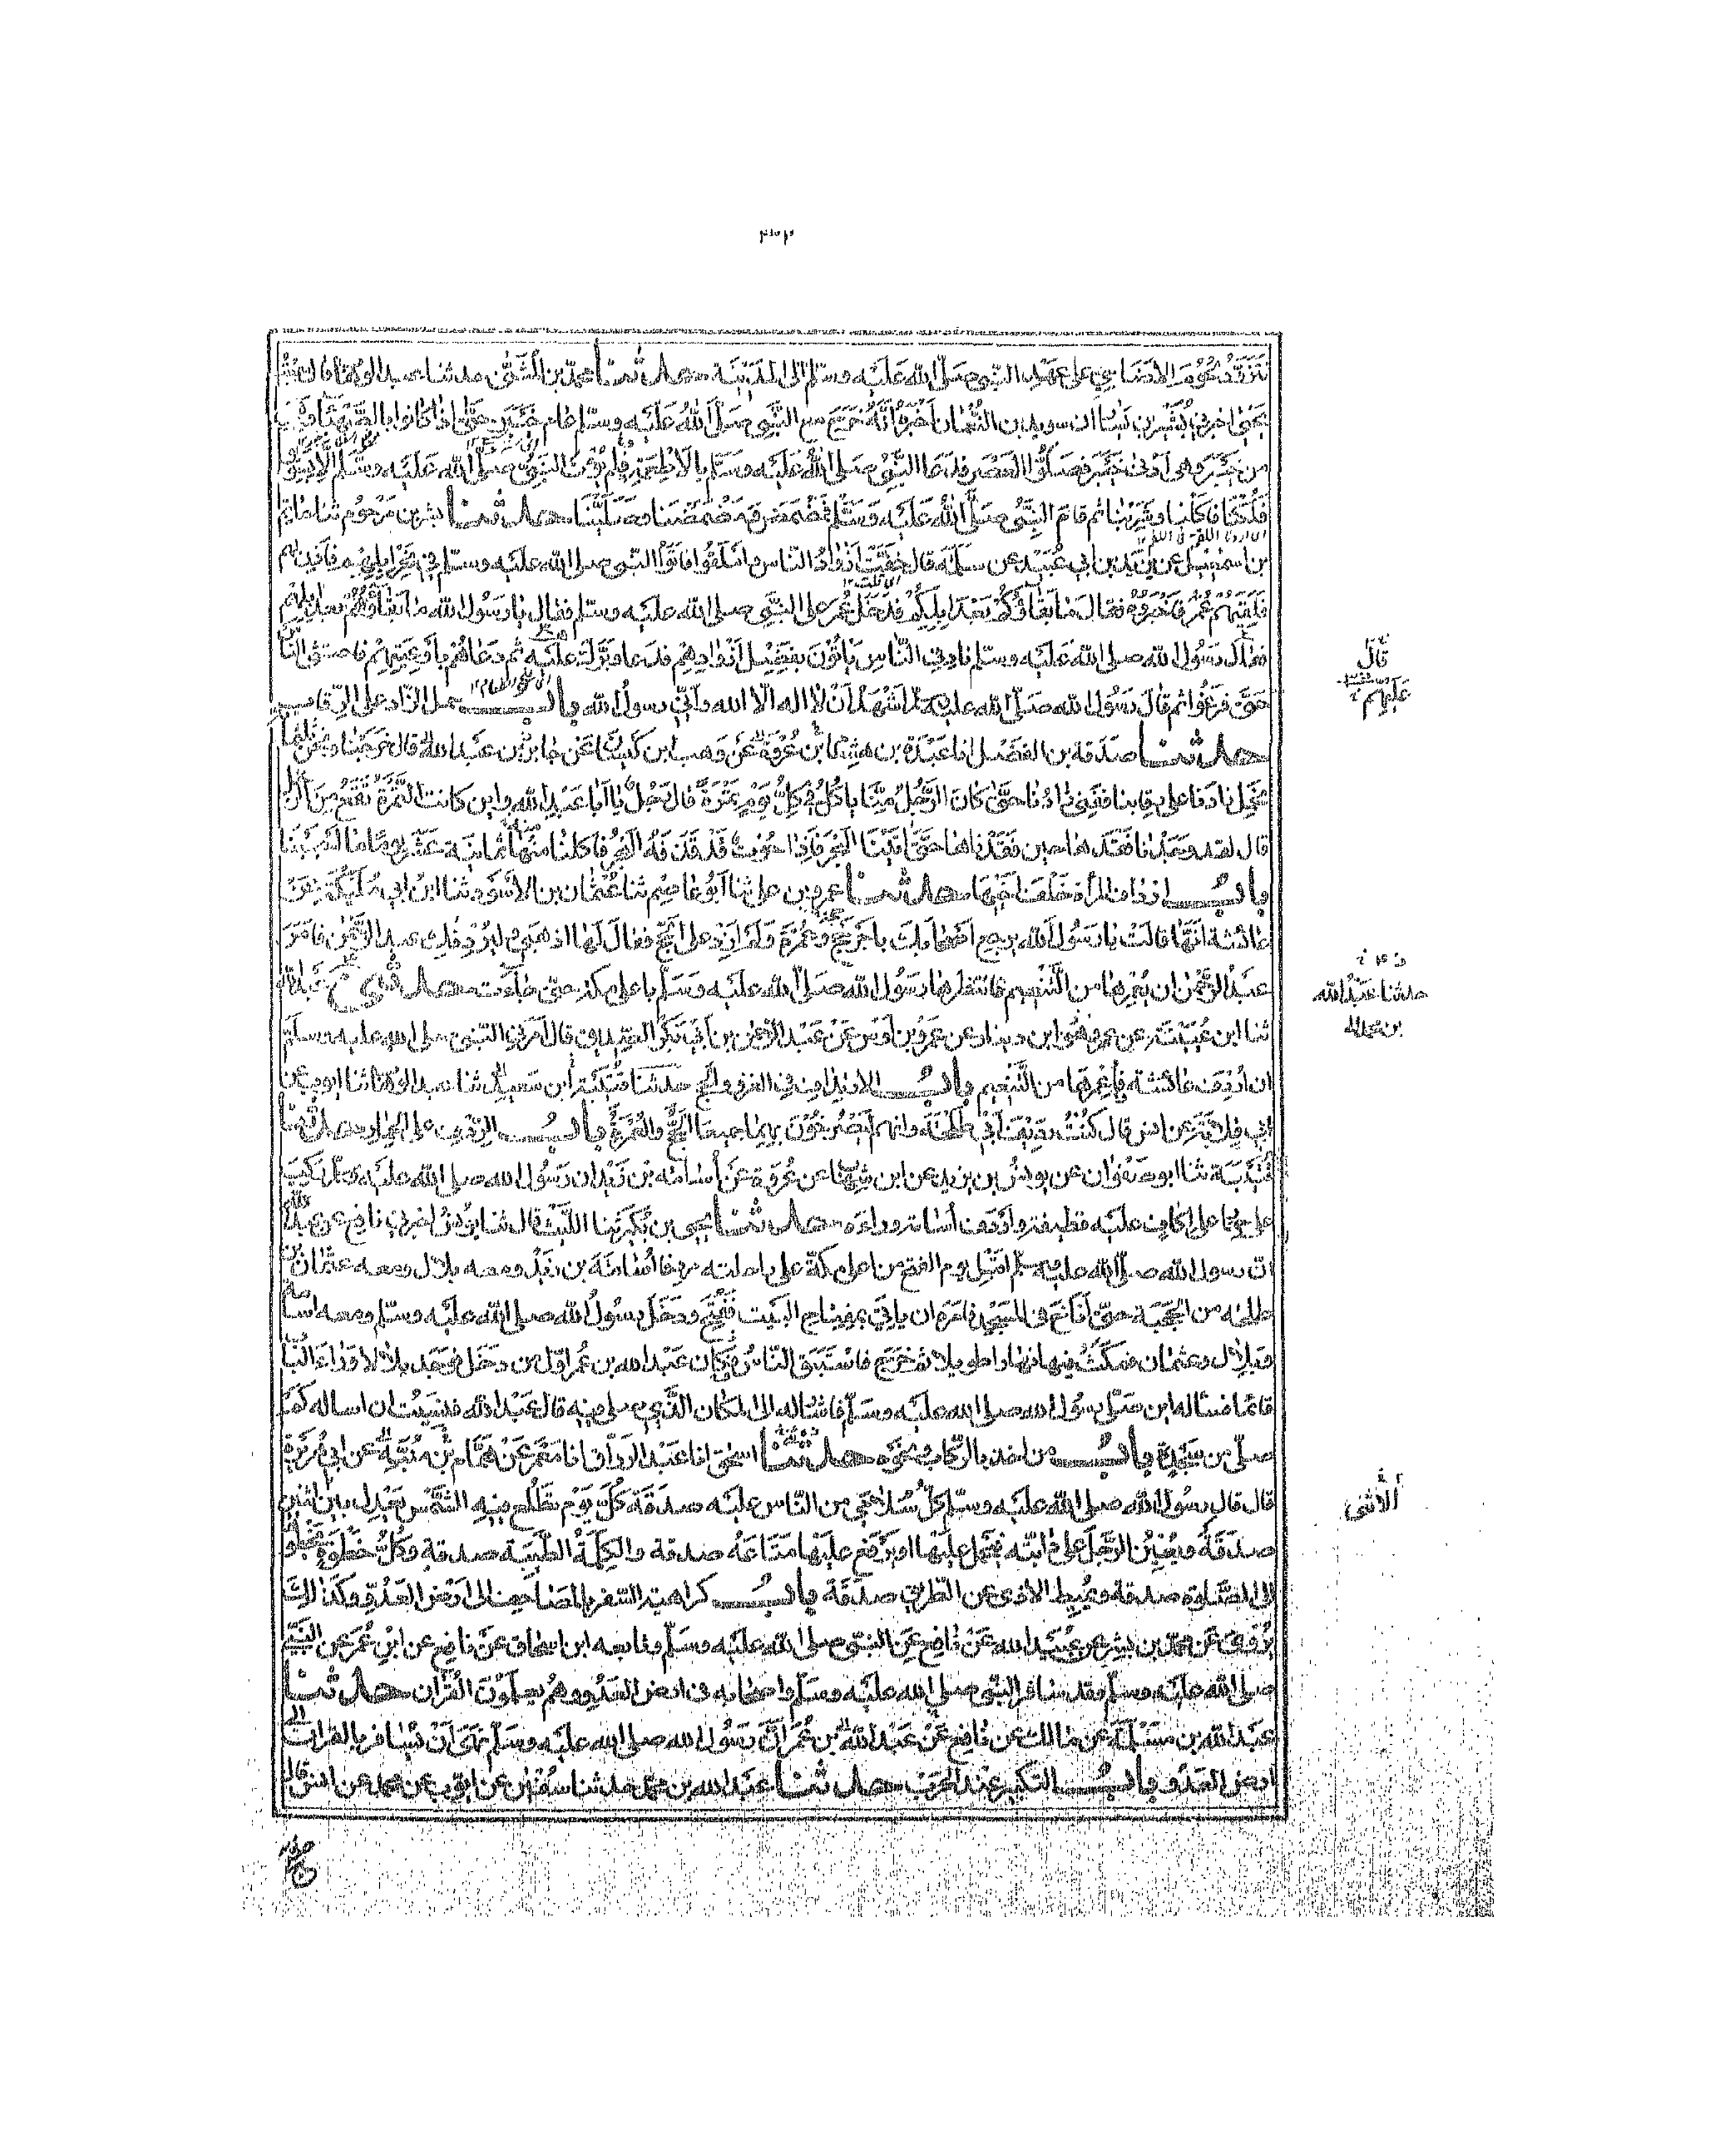 نتزود لحوم الاضاحي على عهد النبي صلى الله عليه وسلم الى المدينة حدثنا محمد بن المثنى حدثنا عبد الوهاب قال
يحيى اخبرني بشير بن يسار ان سويد بن النعمان اخبره انه خرج مع النبي صلى الله عليه وسلم عام خيبر حتى اذا كانوا بالصهباء وهي
من خيبر وهي ادنى خيبر فصلوا العصر فدعا النبي صلى الله عليه وسلم بالاطعمة فلم يؤت النبي صلى الله عليه وسلم الا بسويق
فلكنا فاكلنا وشربنا ثم قام النبي صلى الله عليه وسلم فمضمض ومضمضنا وصلينا حدثنا بشر بن مرحوم ثنا حاتم
بن اسمعيل عن يزيد بن ابي عبيد عن سلمة قال خفت ازواد الناس واملقوا فاتوا النبي صلى الله عليه وسلم في نحر ابلهم فاذن لهم
فلقيهم عمر فاخبروه فقال ما بقاؤكم بعد ابلكم فدخل عمر على النبي صلى الله عليه وسلم فقال يا رسول الله ما بقاؤهم بعد ابلهم
فقال رسول الله صلى الله عليه وسلم ناد في الناس ياتون بفضل ازوادهم فدعا وبرك عليه ثم دعاهم باوعيتهم فاحتثى الناس
حتى فرغوا ثم قال رسول الله صلى الله عليه وسلم اشهد ان لا اله الا الله واني رسول الله باب حمل الزاد على الرقاب
حدثنا صدقة بن الفضل انا عبدة بن هشام بن عروة عن وهب بن كيسان عن جابر بن عبد الله قال خرجنا ونحن ثلثمائة
نحمل زادنا على رقابنا ففني زادنا حتى كان الرجل منا ياكل في كل يوم تمرة قال رجل يا ابا عبد الله واين كانت التمرة تقع من الرجل
قال لقد وجدنا فقدها حين فقدناها حتى اتينا البحر فاذا حوت قد قذفه البحر فاكلنا منها ثمانية عشر يوما ما احببنا
باب ارداف المراة خلف اخيها حدثنا عمرو بن علي ثنا ابو عاصم ثنا عثمان بن الاسود ثنا ابن ابي مليكة عن
عائشة انها قالت يا رسول الله يرجع اصحابك باجر حج وعمرة ولم ازد على الحج فقال لها اذهبي وليردفك عبد الرحمن فامر
عبد الرحمن ان يعمرها من التنعيم فانتظرها رسول الله صلى الله عليه وسلم باعلى مكة حتى جاءت حدثني عبد الله
ثنا ابن عيينة عن عمرو هو ابن دينار عن عمرو بن اوس عن عبد الرحمن بن ابي بكر الصديق قال امرني النبي صلى الله عليه وسلم
ان اردف عائشة واعمرها من التنعيم باب الارتداف في الغزو والحج حدثنا قتيبة ابن سعيد ثنا عبد الوهاب ثنا ايوب عن
ابي قلابة عن انس قال كنت رديف ابي طلحة وانهم ليصرخون بهما جميعا الحج والعمرة باب الردف على الحمار حدثنا
قتيبة ثنا ابو صفوان عن يونس بن يزيد عن ابن شهاب عن عروة عن اسامة بن زيد ان رسول الله صلى الله عليه وسلم ركب
على حمار على اكاف عليه قطيفة واردف اسامة وراءه حدثنا يحيى بن بكير ثنا الليث قال ثنا يونس اخبرني نافع عن عبد الله
ان رسول الله صلى الله عليه وسلم اقبل يوم الفتح من اعلى مكة على راحلته مردفا اسامة بن زيد ومعه بلال ومعه عثمان بن
طلحة من الحجبة حتى اناخ في المسجد فامره ان ياتي بمفتاح البيت ففتح ودخل رسول الله صلى الله عليه وسلم ومعه اسامة
وبلال وعثمان فمكث فيها نهارا طويلا ثم خرج فاستبق الناس فكان عبد الله بن عمر اول من دخل فوجد بلالا وراء الباب
قائما فساله اين صلى رسول الله صلى الله عليه وسلم فاشار له الى المكان الذي صلى فيه قال عبد الله فنسيت ان اساله كم
صلى من سجدة باب من اخذ بالركاب ونحوه حدثنا اسحق انا عبد الرزاق انا معمر عن همام بن منبه عن ابي هريرة
قال قال رسول الله صلى الله عليه وسلم كل سلامى من الناس عليه صدقة كل يوم تطلع فيه الشمس يعدل بين اثنين
صدقة ويعين الرجل على دابته فيحمل عليها او يرفع عليها متاعه صدقة والكلمة الطيبة صدقة وكل خطوة يخطو
الى الصلوة صدقة ويميط الاذى عن الطريق صدقة باب كراهية السفر بالمصاحف الى ارض العدو وكذالك
يروى عن محمد بن بشر عن عبيد الله عن نافع عن النبي صلى الله عليه وسلم وتابعه ابن اسحاق عن نافع عن ابن عمر عن النبي
صلى الله عليه وسلم وقد سافر النبي صلى الله عليه وسلم واصحابه في ارض العدو وهم يعلمون القران حدثنا
عبد الله بن مسلمة عن مالك عن نافع عن عبد الله بن عمر ان رسول الله صلى الله عليه وسلم نهى ان يسافر بالقران الى
ارض العدو باب التكبير عند الحرب حدثنا عبد الله بن محمد حدثنا سفين عن ايوب عن محمد عن انس قال
قال
عليهم
حدثنا عبد الله
بن محمد
الاثنى